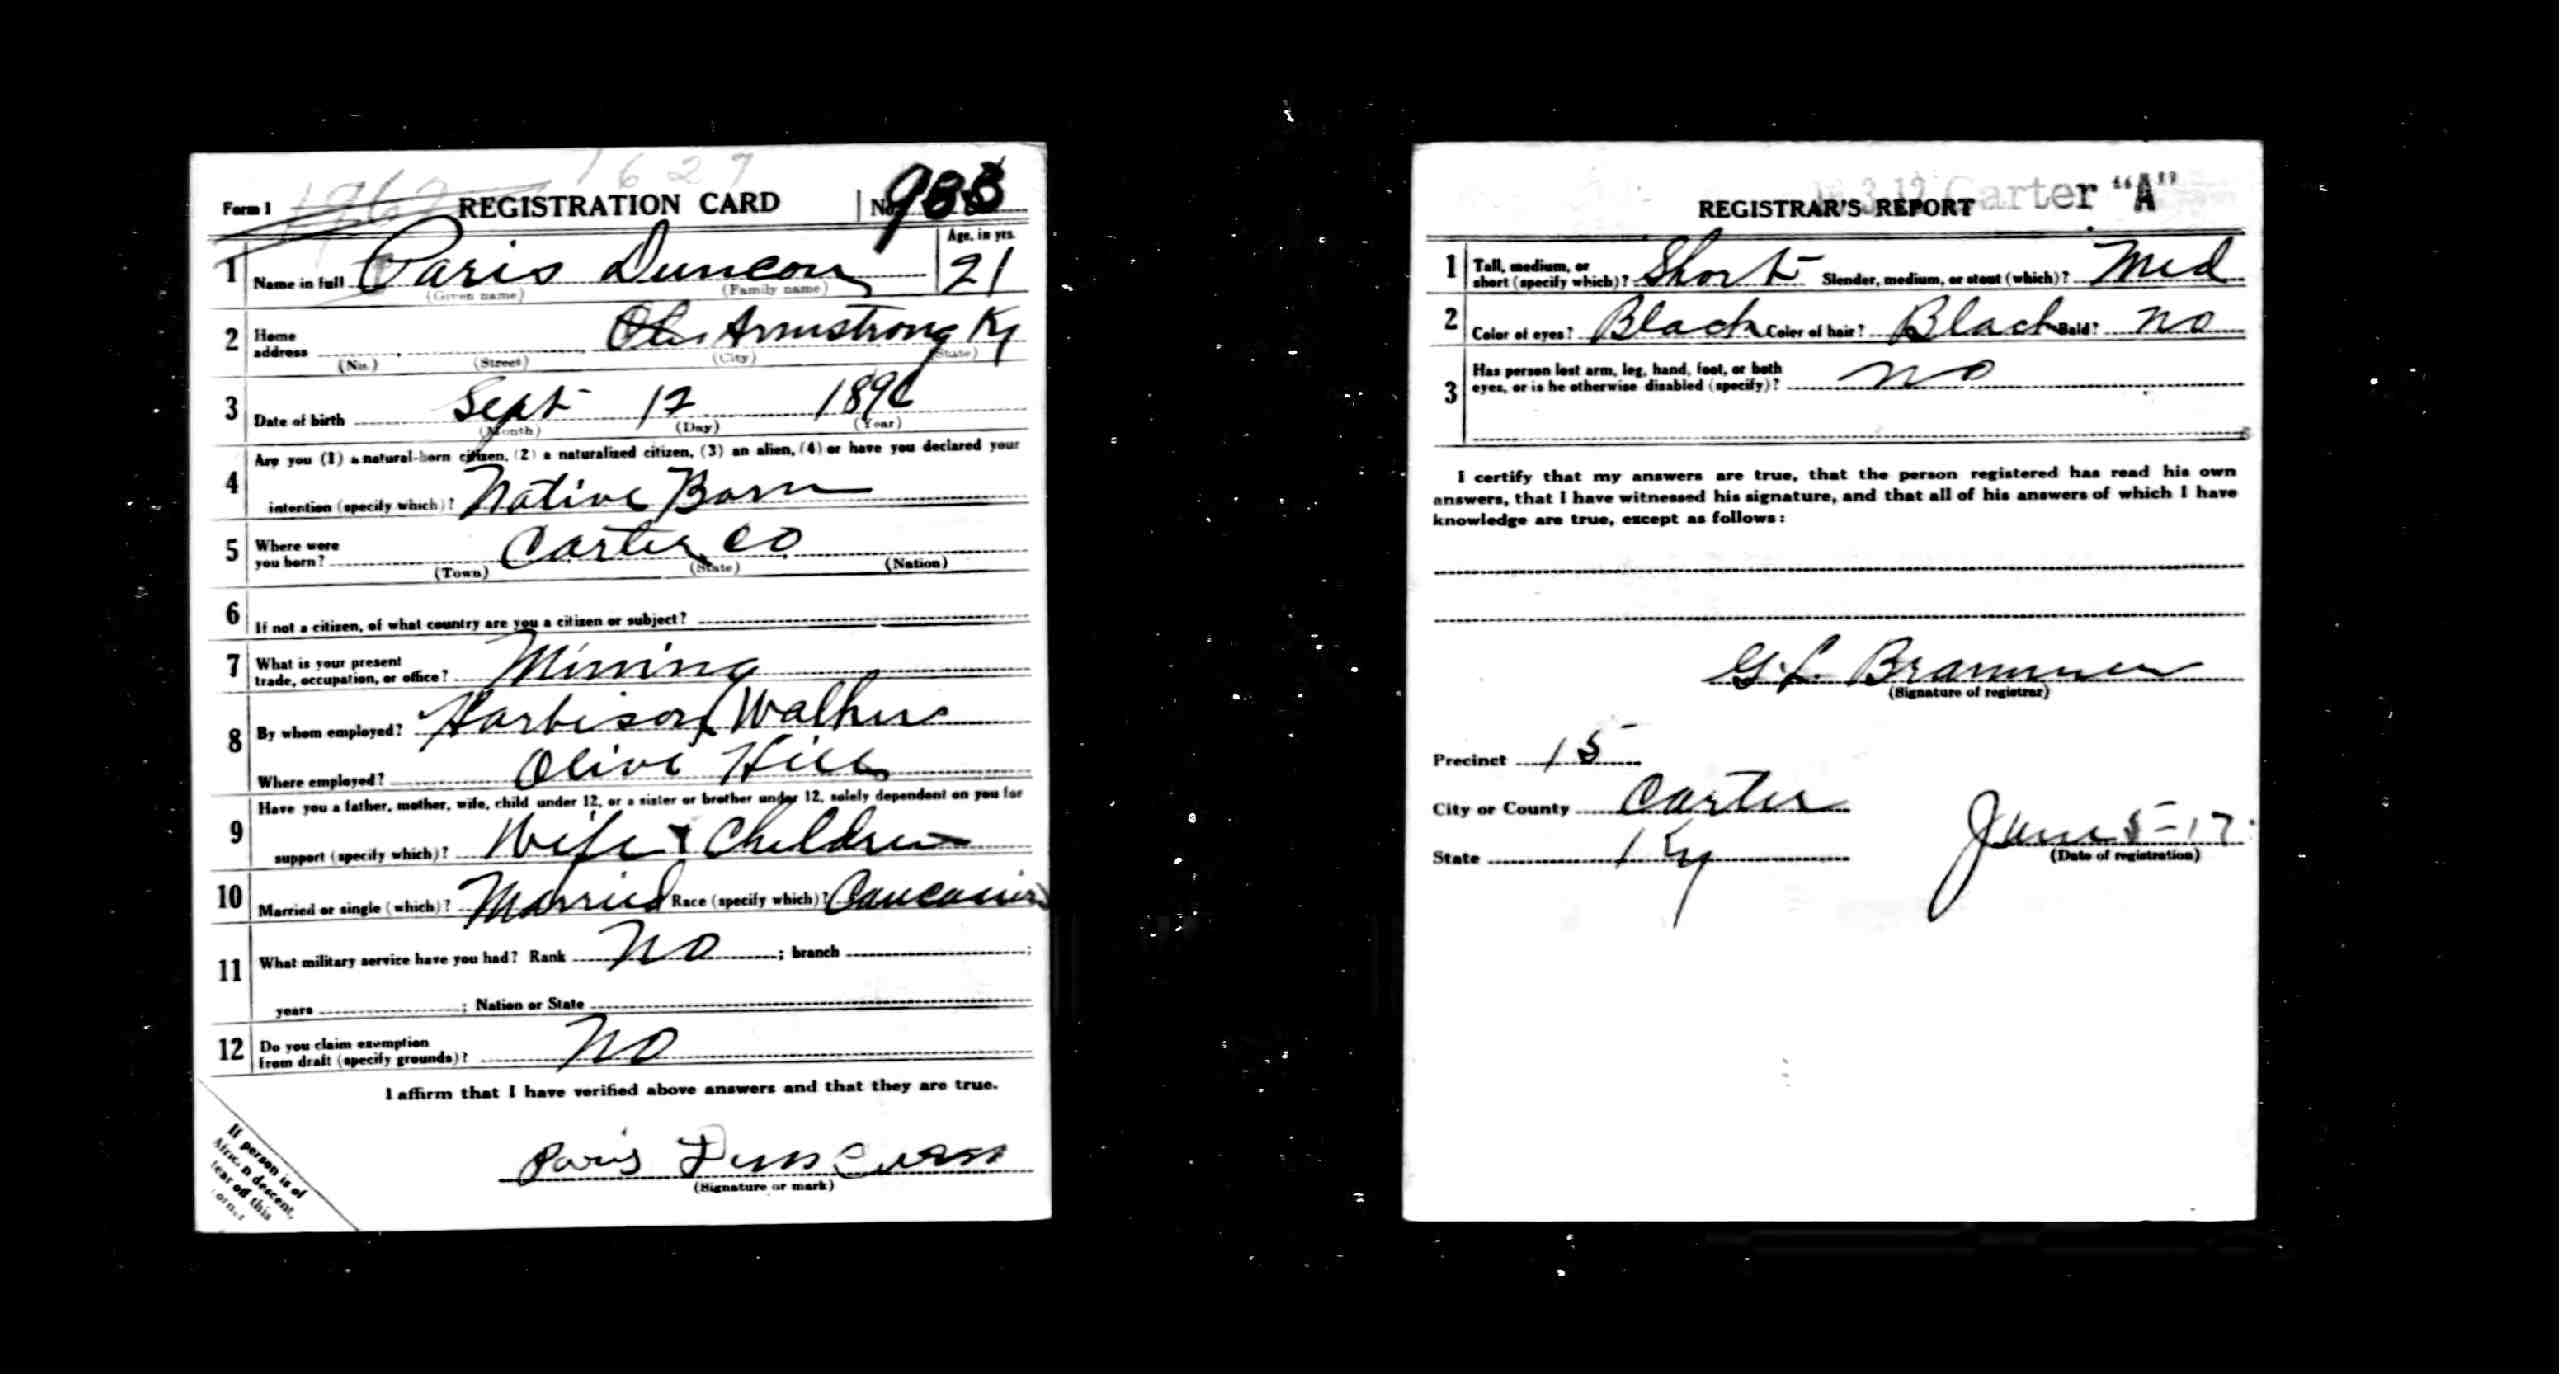 1629
Form 1 REGISTRATION CARD No. 988
1 Name in full Paris Duncon Age, in yrs. 21
(Given name) (Family name)
2 Home address Armstrong Ky
(No.) (Street) (City) (State)
3 Date of birth Sept 12 1896
(Month) (Day) (Year)
4 Are you (1) a natural-born citizen, (2) a naturalized citizen, (3) an alien, (4) or have you declared your
intention (specify which)? Native Born
5 Where were you born? Carter Co
(Town) (State) (Nation)
6 If not a citizen, of what country are you a citizen or subject?
7 What is your present trade, occupation, or office? Mining
8 By whom employed? Harbison Walker
Where employed? Olive Hill
9 Have you a father, mother, wife, child under 12, or a sister or brother under 12, solely dependent on you for
support (specify which)? Wife & Children
10 Married or single (which)? Married Race (specify which)? Caucasian
11 What military service have you had? Rank No ; branch ;
years ; Nation or State
12 Do you claim exemption from draft (specify grounds)? No
I affirm that I have verified above answers and that they are true.
Paris Duncan
(Signature or mark)
If person is of
African descent,
tear off this
corner
Carter "A"
REGISTRAR'S REPORT
1 Tall, medium, or short (specify which)? Short Slender, medium, or stout (which)? Med
2 Color of eyes? Black Color of hair? Black Bald? No
3 Has person lost arm, leg, hand, foot, or both
eyes, or is he otherwise disabled (specify)? No
I certify that my answers are true, that the person registered has read his own
answers, that I have witnessed his signature, and that all of his answers of which I have
knowledge are true, except as follows:
G. L. Brammer
(Signature of registrar)
Precinct 15
City or County Carter
State Ky
June 5-17
(Date of registration)